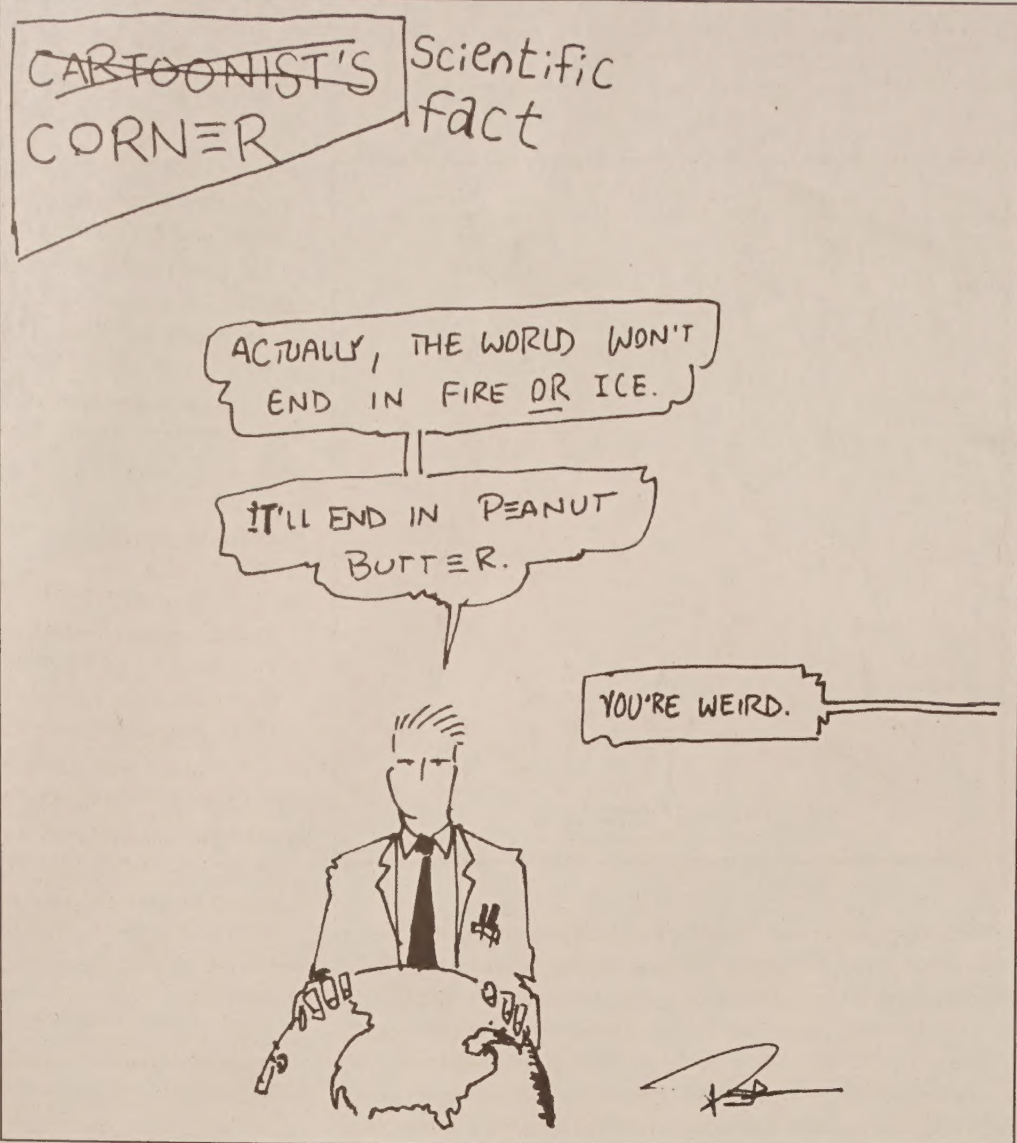 CARTOONIST'S
CORNER
Scientific
fact
ACTUALLY, THE WORLD WON'T
END IN FIRE OR ICE.
IT'LL END IN PEANUT
BUTTER.
YOU'RE WEIRD.